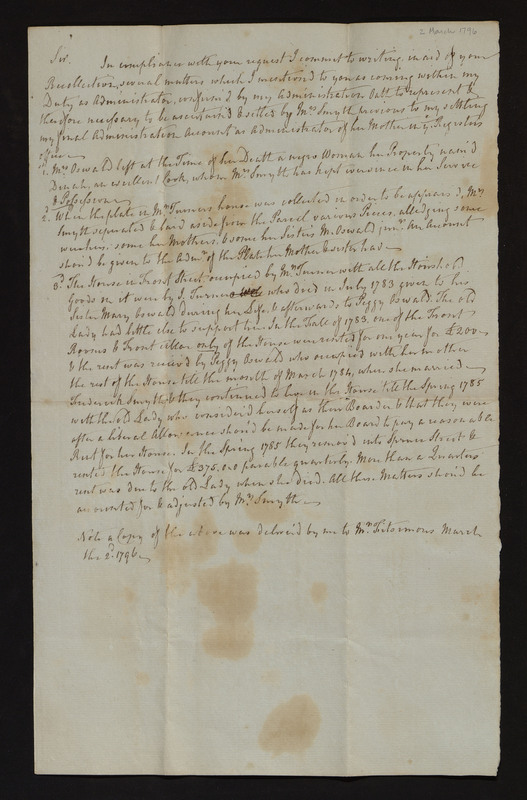 2 March 1796
Sir.
In compliance with your request I commit to writing in aid of your
Recollection, several matters which I mention'd to you as coming within my
Duty as Administrator, confin'd by my Administration Oath to represent &
therefore necessary to be ascertain'd & settled by Mrs Smyth previous to my settling
my final Administration Account as Administrator of her Mother in ye Registers
Office
1. Mrs Oswald left at the Time of her Death a negro Woman her Property nam'd
Dinah, an excellent Cook, whom Mrs Smyth has kept ever since in her Service
& Possession
2d. When the plate in Mrs Turners house was collected in order to be appraised, Mrs
Smyth separated & laid aside from the Parcel various Pieces, alledging some
were hers, some her Mothers & some her Sisters M. Oswald junr. An Account
shou'd be given to the Admr. of the Plate her Mother & sister had
3d. The House in Front Street occupied by Mrs Turner with all the Houshold
Goods in it were by J. Turner who died in July 1783 given to his
Sister Mary Oswald during her Life & afterwards to Peggy Oswald. The old
Lady had little else to support her. In the Fall of 1783 one of the Front
Rooms & Front Cellar only of the House were rented for one year for £200
& the rent was receiv'd by Peggy Oswald who occupied with her mother
the rest of the House till the month of March 1784, when she married
Frederick Smyth & they continued to live in the House till the Spring 1785
with the old Lady who consider'd herself as their Boarder & that they were
after a liberal Allowance shou'd be made for her Board to pay a reasonable
Rent for her House. In the Spring 1785 they remov'd into Spruce Street &
rented the House for £375.0.0 payable quarterly. More than a Quarters
rent was due to the old Lady when she died. All these Matters shou'd be
accounted for & adjusted by Mrs Smyth
Note a Copy of the above was deliver'd by me to Mr Fitsimons March
the 2d. 1796